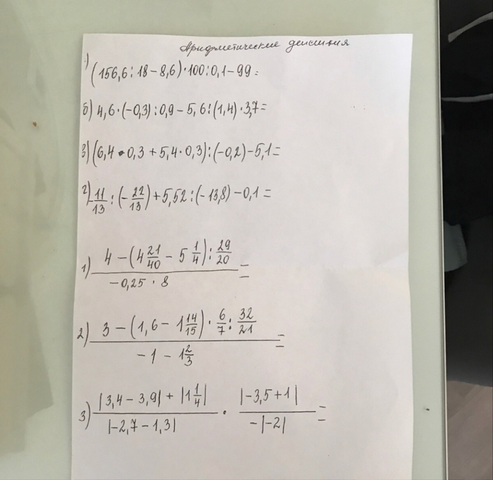 Арифметические действия
1) (156,6 : 18 - 8,6) · 100 : 0,1 - 99 =
б) 4,6 · (-0,3) : 0,9 - 5,6 : (1,4) · 3,7 =
3) (6,4 · 0,3 + 5,4 · 0,3) : (-0,2) - 5,1 =
г) 11/13 : (- 22/13) + 5,52 : (-13,8) - 0,1 =
1) 4 - (4 21/40 - 5 1/4) : 29/20
-0,25 · 8 =
2) 3 - (1,6 - 1 14/15) · 6/7 : 32/21
-1 - 1 2/3 =
3) |3,4 - 3,9| + |1 1/4| · |-3,5 + 1|
|-2,7 - 1,3| -|-2| =